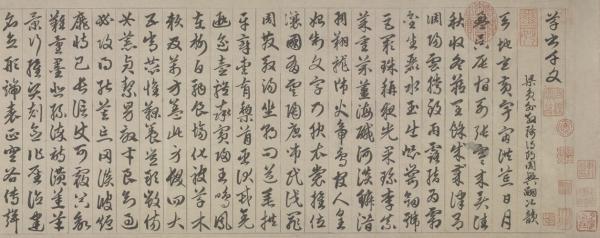 草書千文
梁員外散騎侍郎周興嗣次韻
天地玄黃宇宙洪荒日月
盈昃辰宿列張寒來暑往
秋收冬藏閏餘成歲律呂
調陽雲騰致雨露結為霜
金生麗水玉出崑岡劍號
巨闕珠稱夜光果珍李柰
菜重芥薑海鹹河淡鱗潛
羽翔龍師火帝鳥官人皇
始制文字乃服衣裳推位
讓國有虞陶唐弔民伐罪
周發殷湯坐朝問道垂拱
平章愛育黎首臣伏戎羌
遐邇壹體率賓歸王鳴鳳
在樹白駒食場化被草木
賴及萬方蓋此身髮四大
五常恭惟鞠養豈敢毀傷
女慕貞潔男效才良知過
必改得能莫忘罔談彼短
靡恃己長信使可覆器欲
難量墨悲絲染詩讚羔羊
景行維賢克念作聖德建
名立形端表正空谷傳聲